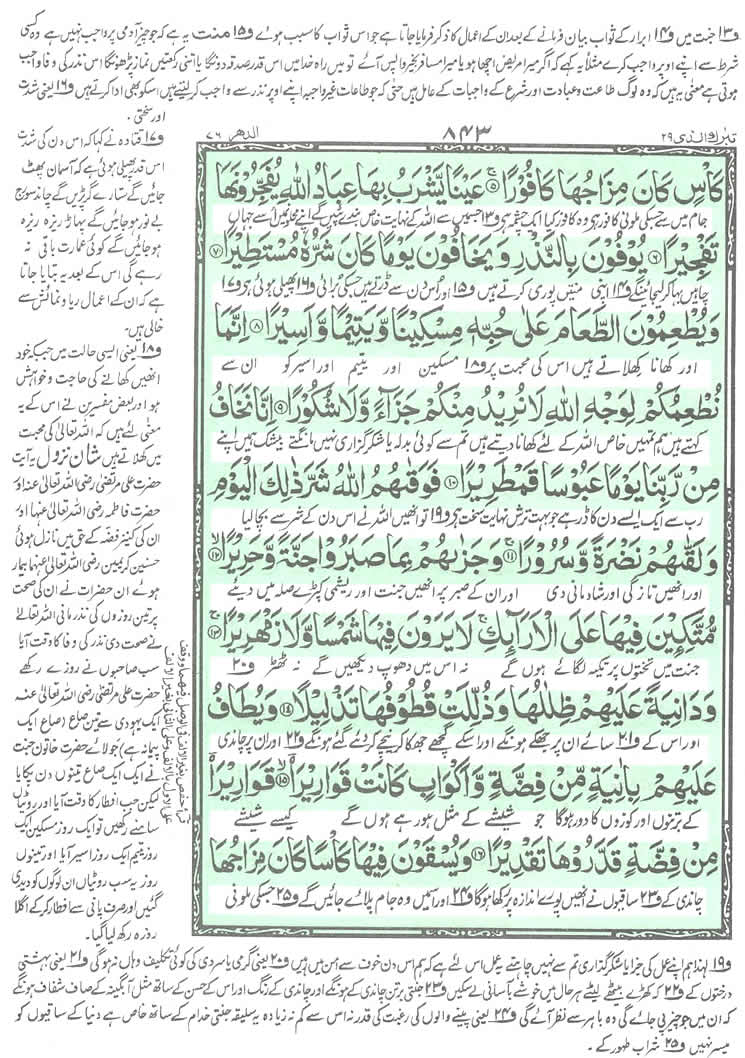 و۱۳ جنت میں و۱۴ ابرار کے ثواب بیان فرمانے کے بعد ان کے اعمال کا ذکر فرمایا جاتا ہے جو اس ثواب کا سبب ہوئے و۱۵ منت یہ ہے کہ جو چیز آدمی پر واجب نہیں ہے وہ کسی
شرط سے اپنے اوپر واجب کرے مثلاً یہ کہے کہ اگر میرا مریض اچھا ہو یا میرا مسافر بخیر واپس آئے تو میں راہ خدا میں اس قدر صدقہ دونگا یا اتنی رکعتیں نماز پڑھونگا اس نذر کی وفا واجب
ہوتی ہے معنٰی یہ ہیں کہ وہ لوگ طاعت و عبادت اور شرع کے واجبات کے عامل ہیں حتی کہ جو طاعات غیر واجبہ اپنے اوپر نذر سے واجب کر لیتے ہیں اسکو بھی ادا کرتے ہیں و۱۶ یعنی شدت
اور سختی .
تبٰرك الذی ۲۹
۸۴۳
الدهر ۷۶
كَاْسٍ كَانَ مِزَاجُهَا كَافُوْرًا ۵ عَيْنًا يَّشْرَبُ بِهَا عِبَادُ اللّٰهِ يُفَجِّرُوْنَهَا
جام میں سے جسکی ملونی کافور ہے وہ کافور کیا ایک چشمہ ہے و۱۳ جسمیں سے اللہ کے نہایت خاص بندے پئیں گے اپنے محلوں میں اسے جہاں
تَفْجِيْرًا ۶ يُوْفُوْنَ بِالنَّذْرِ وَيَخَافُوْنَ يَوْمًا كَانَ شَرُّهٗ مُسْتَطِيْرًا ۷
چاہیں بہا کر لیجائینگے و۱۴ اپنی منتیں پوری کرتے ہیں و۱۵ اور اس دن سے ڈرتے ہیں جسکی برائی و۱۶ پھیلی ہوئی ہے و۱۷
وَيُطْعِمُوْنَ الطَّعَامَ عَلٰى حُبِّهٖ مِسْكِيْنًا وَّيَتِيْمًا وَّاَسِيْرًا ۸ اِنَّمَا
اور کھانا کھلاتے ہیں اس کی محبت پر و۱۸ مسکین اور یتیم اور اسیر کو ان سے
نُطْعِمُكُمْ لِوَجْهِ اللّٰهِ لَا نُرِيْدُ مِنْكُمْ جَزَآءً وَّلَا شُكُوْرًا ۹ اِنَّا نَخَافُ
کہتے ہیں ہم تمہیں خاص اللہ کے لئے کھانا دیتے ہیں تم سے کوئی بدلہ یا شکر گزاری نہیں مانگتے بیشک ہمیں اپنے
مِنْ رَّبِّنَا يَوْمًا عَبُوْسًا قَمْطَرِيْرًا ۱۰ فَوَقٰىهُمُ اللّٰهُ شَرَّ ذٰلِكَ الْيَوْمِ
رب سے ایک ایسے دن کا ڈر ہے جو بہت ترش نہایت سخت ہے و۱۹ تو انھیں اللہ نے اس دن کے شر سے بچالیا
وَلَقّٰىهُمْ نَضْرَةً وَّسُرُوْرًا ۱۱ وَجَزٰىهُمْ بِمَا صَبَرُوْا جَنَّةً وَّحَرِيْرًا ۱۲
اور انھیں تازگی اور شادمانی دی اور ان کے صبر پر انھیں جنت اور ریشمی کپڑے صلہ میں دیئے
مُّتَّكِـِٕيْنَ فِيْهَا عَلَى الْاَرَآىِٕكِ لَا يَرَوْنَ فِيْهَا شَمْسًا وَّلَا زَمْهَرِيْرًا ۱۳
جنت میں تختوں پر تکیہ لگائے ہوں گے نہ اس میں دھوپ دیکھیں گے نہ ٹھٹھر و۲۰
وَدَانِيَةً عَلَيْهِمْ ظِلٰلُهَا وَذُلِّلَتْ قُطُوْفُهَا تَذْلِيْلًا ۱۴ وَيُطَافُ
اور اس کے و۲۱ سائے ان پر جھکے ہونگے اور اسکے گچھے جھکا کر نیچے کر دئے گئے ہونگے و۲۲ اور ان پر چاندی
عَلَيْهِمْ بِاٰنِيَةٍ مِّنْ فِضَّةٍ وَّاَكْوَابٍ كَانَتْ قَوَارِيْرَا۠ ۱۵ قَوَارِيْرَا۠
کے برتنوں اور کوزوں کا دور ہوگا جو شیشے کے مثل ہورہے ہوں گے کیسے شیشے
مِنْ فِضَّةٍ قَدَّرُوْهَا تَقْدِيْرًا ۱۶ وَيُسْقَوْنَ فِيْهَا كَاْسًا كَانَ مِزَاجُهَا
چاندی کے و۲۳ ساقیوں نے انھیں پورے اندازہ پر رکھا ہوگا و۲۴ اور اسمیں وہ جام پلائے جائیں گے و۲۵ جسکی ملونی
و۱۷ قتادہ نے کہا کہ اس دن کی شدت
اس قدر پھیلی ہوئی ہے کہ آسمان پھٹ
جائیں گے ستارے گر پڑیں گے چاند سورج
بے نور ہو جائیں گے پہاڑ ریزہ ریزہ
ہو جائیں گے کوئی عمارت باقی نہ
رہے گی اس کے بعد یہ بتایا جاتا
ہے کہ ان کے اعمال ریا و نمائش سے
خالی ہیں.
و۱۸ یعنی ایسی حالت میں جبکہ خود
انھیں کھانے کی حاجت و خواہش
ہو اور بعض مفسرین نے اس کے یہ
معنٰی لئے ہیں کہ اللہ تعالیٰ کی محبت
میں کھلاتے ہیں شان نزول یہ آیت
حضرت علی مرتضی رضی اللہ تعالیٰ عنہ اور
حضرت فاطمہ رضی اللہ تعالیٰ عنہا اور
ان کی کنیز فضہ کے حق میں نازل ہوئی
حسنین کریمین رضی اللہ تعالیٰ عنہما بیمار
ہوئے ان حضرات نے ان کی صحت
پر تین روزوں کی نذر مانی اللہ تعالیٰ
نے صحت دی نذر کی وفا کا وقت آیا
سب صاحبوں نے روزے رکھے
حضرت علی مرتضی رضی اللہ تعالیٰ عنہ
ایک یہودی سے تین صاع (صاع ایک
پیمانہ ہے) جو لائے حضرت خاتون جنت
نے ایک ایک صاع تینوں دن پکایا
لیکن جب افطار کا وقت آیا اور روٹیاں
سامنے رکھیں تو ایک روز مسکین ایک
روز یتیم ایک روز اسیر آیا اور تینوں
روز یہ سب روٹیاں ان لوگوں کو دیدی
گئیں اور صرف پانی سے افطار کرکے اگلا
روزہ رکھ لیا گیا.
و۱۹ لہٰذا ہم اپنے عمل کی جزا یا شکر گزاری تم سے نہیں چاہتے یہ عمل اس لئے ہے کہ ہم اس دن خوف سے امن میں ہیں و۲۰ یعنی گرمی یا سردی کی کوئی تکلیف وہاں نہ ہوگی و۲۱ یعنی بہشتی
درختوں کے و۲۲ کہ کھڑے بیٹھے لیٹے ہر حال میں خوشے بآسانی لے سکیں و۲۳ جنتی برتن چاندی کے ہونگے اور چاندی کے رنگ اور اس کے حسن کے ساتھ مثل آبگینہ کے صاف شفاف ہونگے
کہ ان میں جو چیز پی جائے گی وہ باہر سے نظر آئے گی و۲۴ یعنی پینے والوں کی رغبت کی قدر نہ اس سے کم نہ زیادہ یہ سلیقہ جنتی خدام کے ساتھ خاص ہے دنیا کے ساقیوں کو
میسر نہیں و۲۵ شراب طہور کے .